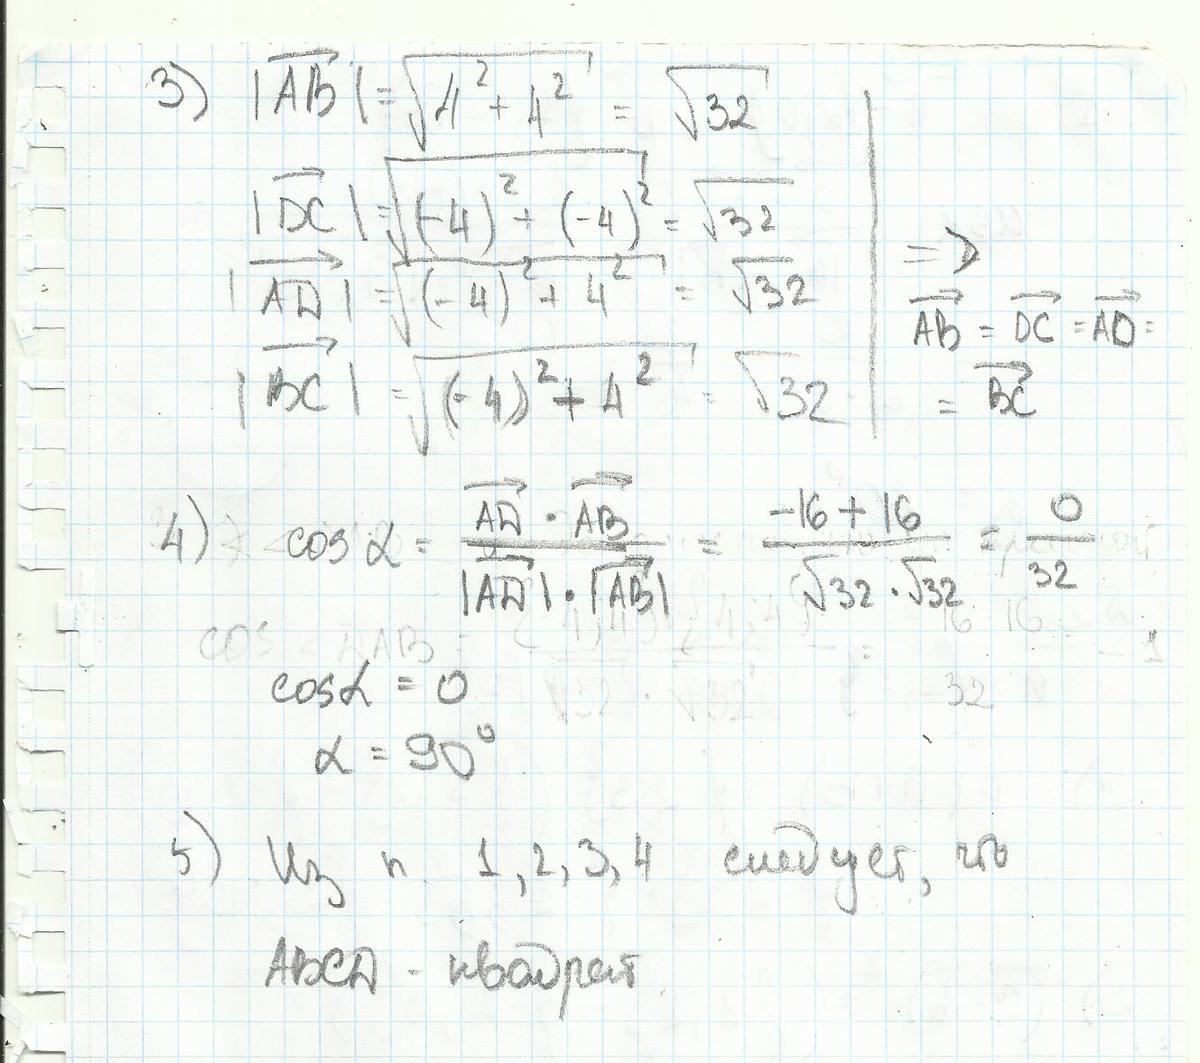 3) |AB| = √4² + 4² = √32
|DC| = √(-4)² + (-4)² = √32
|AD| = √(-4)² + 4² = √32
|BC| = √(-4)² + 4² = √32
=>
AB = DC = AD =
= BC
4) cos α = AD · AB / |AD| · |AB| = -16 + 16 / √32 · √32 = 0 / 32
cos α = 0
α = 90°
5) Из п. 1, 2, 3, 4 следует, что
ABCD - квадрат